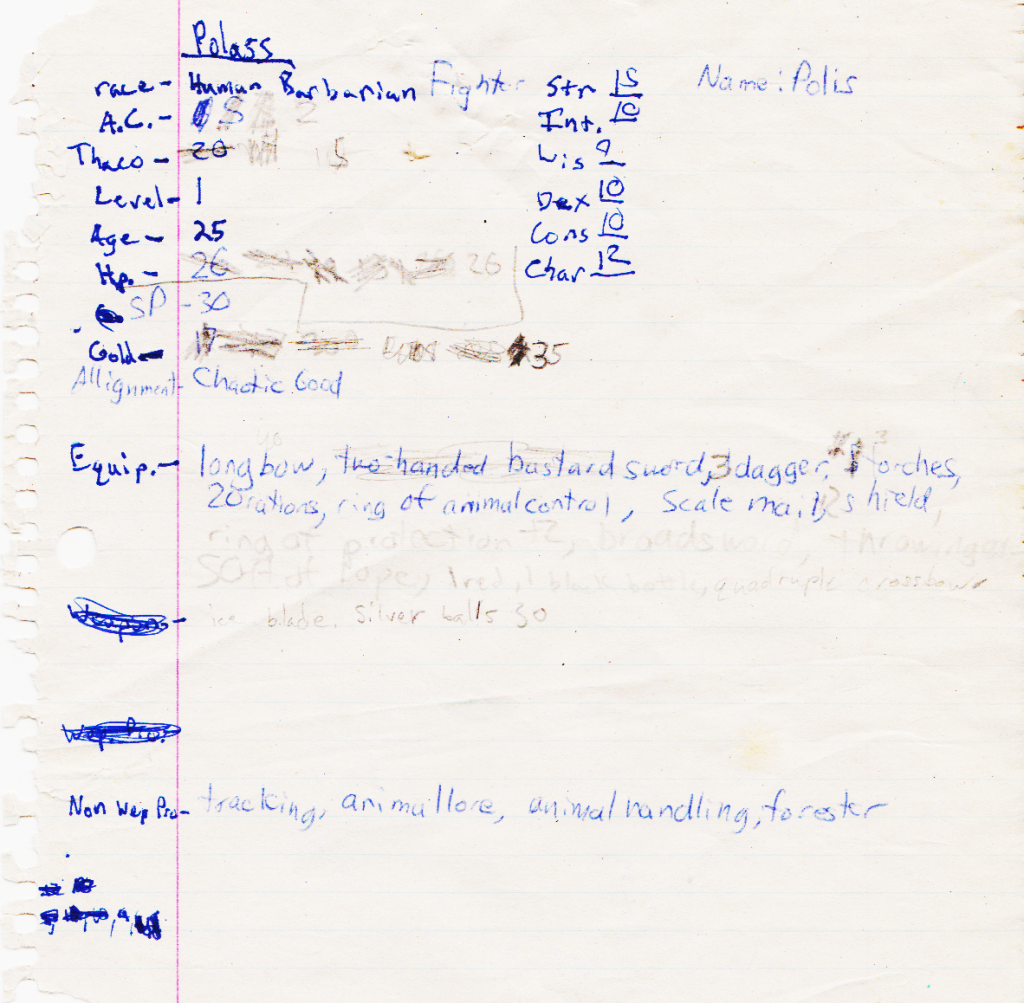 Polass
race - Human Barbarian Fighter Str 15 Name: Polis
A.C. - 8 2 Int. 10
Thaco - 20 15 Wis 9
Level - 1 Dex 10
Age - 25 Cons 10
Hp. - 26 26 Char 12
SP - 30
Gold - 17 35
Allignment - Chaotic Good
Equip. - longbow, two-handed bastard sword, 3 dagger, torches,
20 rations, ring of animal control, Scale mail, shield,
ring of protection +2, broadsword,
50ft of rope, 1 red, 1 black bottle, quadruple crossbow
ice blade. silver balls 30
Wep. Pro.
Non Wep Pro - tracking, animal lore, animal handling, forester